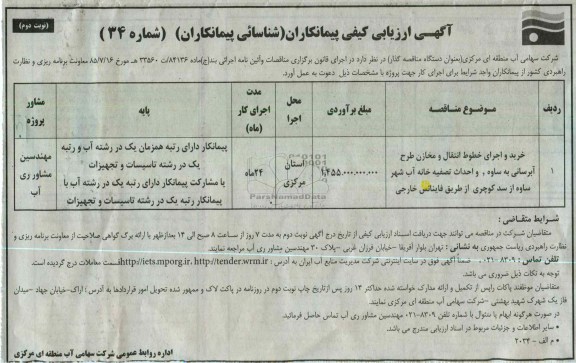 (نوبت دوم)
آگهـی ارزیابی کیفی پیمانکاران(شناسائی پیمانکاران) (شماره ۳۴)
شرکت سهامی آب منطقه ای مرکزی(بعنوان دستگاه مناقصه گذار) در نظر دارد در اجرای قانون برگزاری مناقصات وآئین نامه اجرائی بند(ج)ماده ۸۴۱۳۶/ت ۳۳۵۶۰ هـ مورخ ۸۵/۷/۱۶ معاونت برنامه ریزی و نظارت
راهبردی کشور از پیمانکاران واجد شرایط برای اجرای کار جهت پروژه با مشخصات ذیل دعوت به عمل آورد.
ردیف
موضـوع مناقصـه
مبلغ برآوردی
محل اجرا
مدت اجرای کار (ماه)
پایه
مشاور پروژه
۱
خرید و اجرای خطوط انتقال و مخازن طرح
آبرسانی به ساوه , و احداث تصفیه خانه آب شهر
ساوه از سد کوچری از طریق فاینانس خارجی
۱,۴۵۵,۰۰۰,۰۰۰,۰۰۰
استان مرکزی
۲۴ماه
پیمانکار دارای رتبه همزمان یک در رشته آب و رتبه
یک در رشته تاسیسات و تجهیزات
یا مشارکت پیمانکار دارای رتبه یک در رشته آب با
پیمانکار رتبه یک در رشته تاسیسات و تجهیزات
مهندسین مشاور ری آب
شرایط متقاضی :
متقاضیان شـرکت در مناقصه می توانند جهت دریافت اسـناد ارزیابی کیفی از تاریخ درج آگهی نوبت دوم به مدت ۷ روز از ساعت ۸ صبح الی ۱۴ بعدازظهر با ارائه برگ گواهی صلاحیت از معاونت برنامه ریزی و
نظارت راهبردی ریاست جمهوری به نشانی : تهران بلوار آفریقا - خیابان فرزان غربی -پلاک ۳۰ مهندسین مشاور ری آب مراجعه نمایند.
تلفن تماس : ۸۳۰۹-۰۲۱ ضمناً آگهی فوق در سایت اینترنتی شرکت مدیریت منابع آب ایران به آدرس : http://iets.mporg.ir, http://tender.wrm.ir قسمت معاملات درج گردیده است.
توجه به نکات ذیل ضروری می باشد.
متقاضیان موظفند پاکات رایس از تکمیل و ارائه مدارک خواسته شده حداکثر ۱۴ روز پس ازتاریخ چاپ نوبت دوم در روزنامه در پاکت لاک و ممهور شده تحویل امور قراردادها به آدرس : اراک-خیابان جهاد -میدان
فاز یک شهرک شهید بهشتی -شرکت سهامی آب منطقه ای مرکزی نمایند.
در صورت هرگونه ابهام یا سئوال با شماره تلفن ۸۳۰۹-۰۲۱ مهندسین مشاور ری آب تماس حاصل فرمائید.
• سایر اطلاعات و جزئیات مربوط در اسناد ارزیابی مندرج می باشد.
• م الف - ۲۰۳۴
اداره روابط عمومی شرکت سهامی آب منطقه ای مرکزی